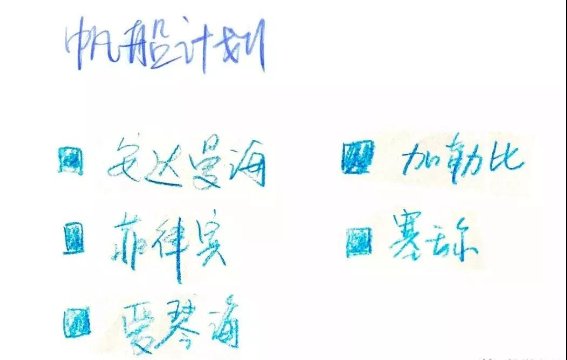 帆船计划
安达曼海
加勒比
菲律宾
塞舌尔
爱琴海